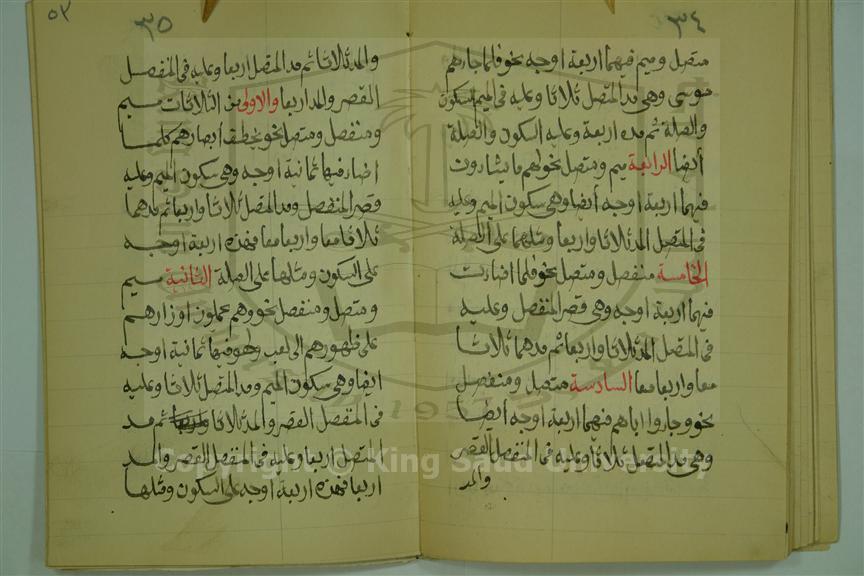 ٣٤
متصل وميم فيهما اربعة اوجه نحو فلما جاءهم
موسى وهى مد المتصل ثلاثا وعليه فى الميم السكون
والصلة ثم مده اربعة وعليه السكون والصلة
أيضا الرابعة ميم ومتصل نحو لهم ما يشاءون
فيهما اربعة اوجه أيضا وهى سكون الميم وعليه
فى المتصل المد ثلاثا واربعا ومثلهما على الصلة
الخامسة منفصل ومتصل نحو فلما اضاءت
فيهما اربعة اوجه وهى قصر المنفصل وعليه
فى المتصل المد ثلاثا واربعا ثم مدهما ثلاثا
معا واربعا معا السادسة متصل ومنفصل
نحو وجاءوا اباهم فيهما اربعة اوجه ايضا
وهى مد المتصل ثلاثا وعليه فى المنفصل القصر
والمد
٣٥
٥٢
والمد ثلاثا ثم مد المتصل اربعا وعليه فى المنفصل
القصر والمد اربعا والاولى من الثلاثات ميم
ومنفصل ومتصل نحو يخطف ابصارهم كلما
اضاء فيها ثمانية اوجه وهى سكون الميم وعليه
قصر المنفصل ومد المتصل ثلاثا واربعا ثم مدهما
ثلاثا معا واربعا معا فهذه اربعة اوجه
على السكون ومثلها على الصلة الثانية ميم
ومتصل ومنفصل نحو وهم يحملون اوزارهم
على ظهورهم الى لعب ولهو فيها ثمانية اوجه
ايضا وهى سكون الميم ومد المتصل ثلاثا وعليه
فى المنفصل القصر والمد ثلاثا ثم مد
المتصل اربعا وعليه فى المنفصل القصر والمد
اربعا فهذه اربعة اوجه على السكون ومثلها
Copyright © King Saud University